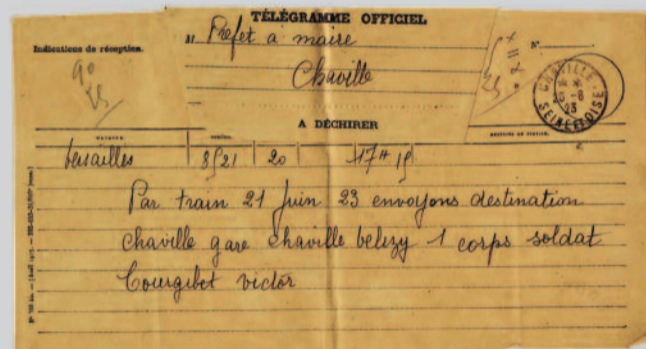 TÉLÉGRAMME OFFICIEL
Indications de réception.
Préfet a maire
N°
Chaville
90
25
CHAVILLE
23
SEINE-ET-OISE
A DÉCHIRER
Versailles 8521 20 17H 15
Par train 21 juin 23 envoyons destination
chaville gare chaville belizy 1 corps soldat
Courgibet victor